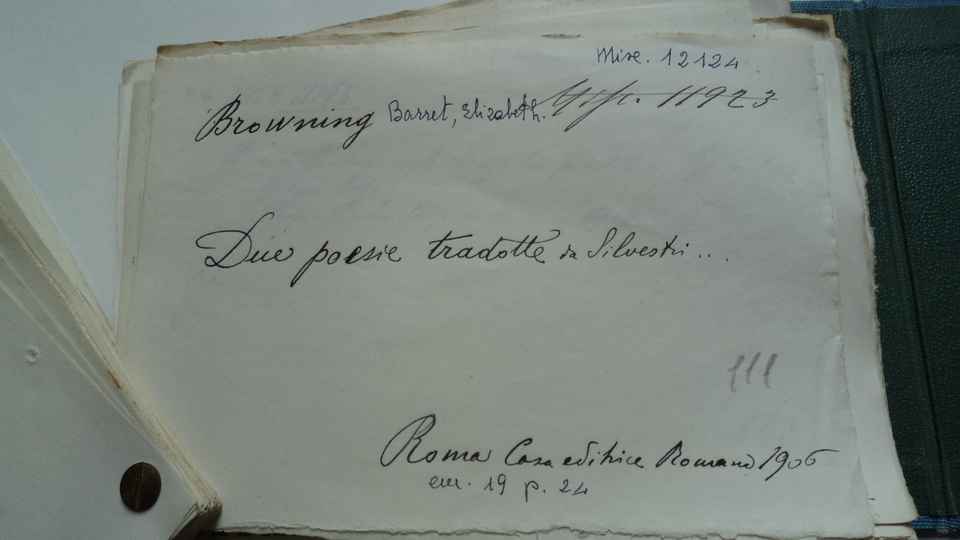 Misc. 12124
Browning Barret, Elizabeth. 11923
Due poesie tradotte da Silvestri...
111
Roma Casa editrice Romana 1906
cm. 19 p. 24